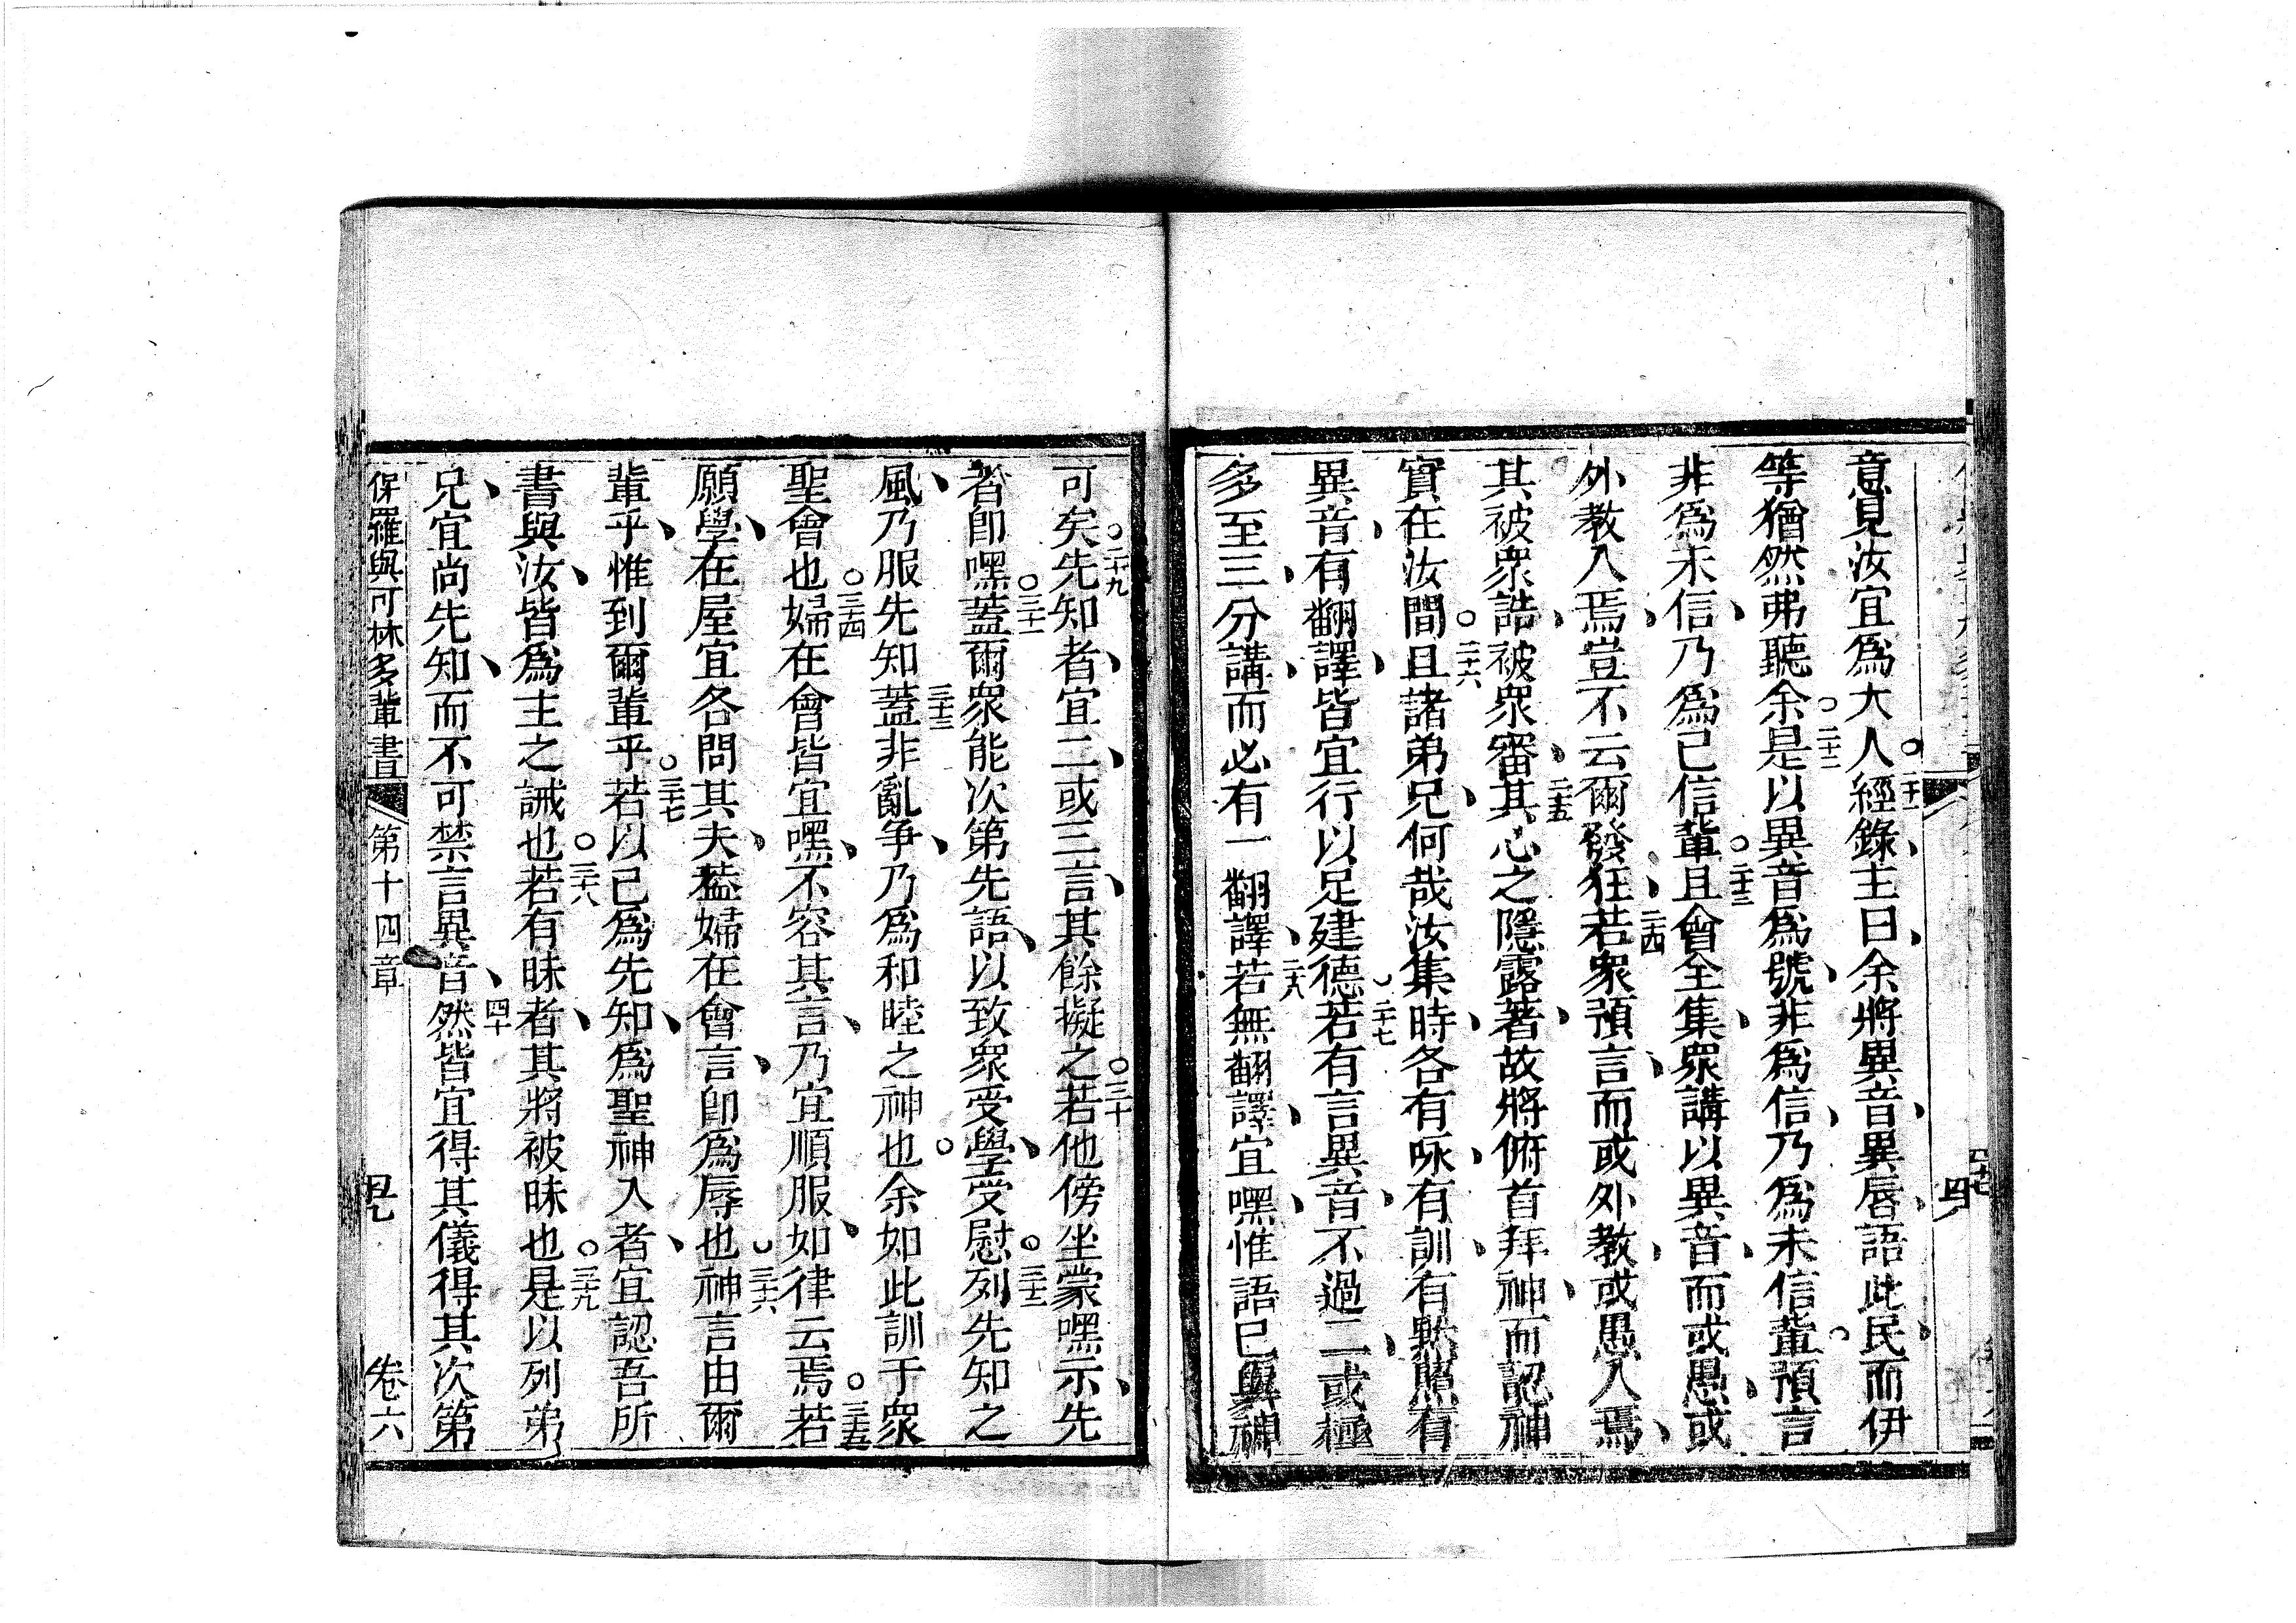 意見汝宜爲大人○二十一經錄主曰余將異音異唇語此民而伊
等猶然弗聽余○二十二是以異音爲號非爲信乃爲未信輩。預言
非爲未信乃爲已信輩○二十三且會全集衆講以異音而或愚或
外教入焉豈不云爾發狂○二十四若衆預言而或外教或愚入焉
其被衆誥被衆審○二十五其心之隱露著故將俯首拜神而認神
實在汝間○二十六且諸弟兄何哉汝集時各有咏有訓有默照有
異音有翻譯皆宜行以足建德○二十七若有言異音不過二或極
多至三分講而必有一翻譯○二十八若無翻譯宜嘿惟語己與神
可矣○二十九先知者宜二或三言其餘擬之○三十若他傍坐蒙嘿示先
者卽嘿○三十一蓋爾衆能次第先語以致衆受學受慰○三十二列先知之
風乃服先知○三十三蓋非亂爭乃爲和睦之神也○余如此訓于衆
聖會也○三十四婦在會皆宜嘿不容其言乃宜順服如律云焉○三十五若
願學在屋宜各問其夫蓋婦在會言卽爲辱也○三十六神言由爾
輩乎惟到爾輩乎○三十七若以己爲先知爲聖神人者宜認吾所
書與汝皆爲主之誡也○三十八若有昧者其將被昧也○三十九是以列弟
兄宜尚先知而不可禁言異音○四十然皆宜得其儀得其次第
保羅與可林多輩書 第十四章 卷六